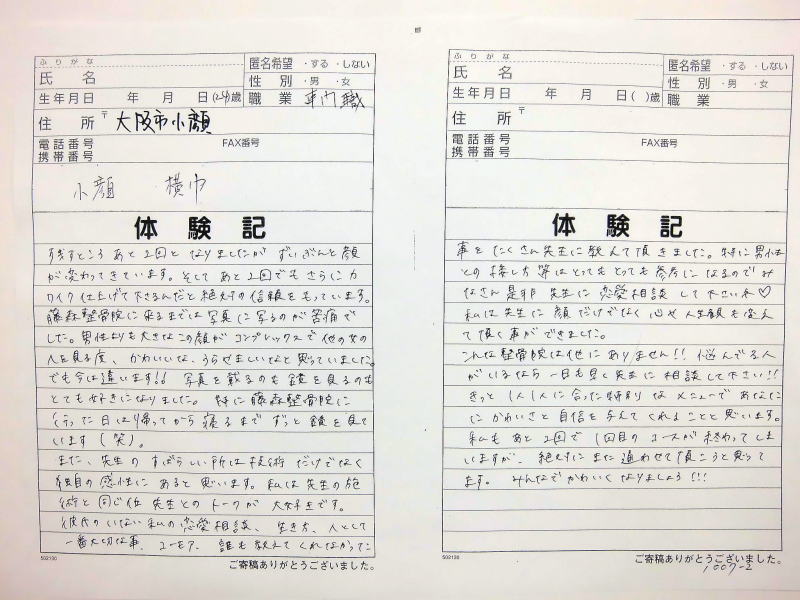 ふりがな
氏 名
匿名希望 ・する ・しない
性 別 ・男 ・女
生年月日 年 月 日(24)歳
職 業 専門職
住 所 〒 大阪市小顔
電話番号
携帯番号
FAX番号
小顔 横巾
体験記
残すところあと2回となりましたがずいぶんと顔
が変わってきています。そしてあと2回でもさらにカ
ワイク仕上げて下さるんだと絶対の信頼をもっています。
藤森整骨院に来るまでは写真に写るのが苦痛で
した。男性よりも大きなこの顔がコンプレックスで他の女の
人を見る度、かわいいな、うらやましいなと思っていました。
でも今は違います!! 写真を載るのも鏡を見るのも
とても好きになりました。特に藤森整骨院に
行った日は帰ってから寝るまでずっと鏡を見て
います(笑)。
また、先生のすばらしい所は技術だけでなく
独自の感性にあると思います。私は先生の施
術と同じ位先生とのトークが大好きです。
彼氏のいない私の恋愛相談、生き方、人として
一番大切な事、ユーモア、誰も教えてくれなかった
502130
ご寄稿ありがとうございました。
ふりがな
氏 名
匿名希望 ・する ・しない
性 別 ・男 ・女
生年月日 年 月 日( )歳
職 業
住 所 〒
電話番号
携帯番号
FAX番号
体験記
事をたくさん先生に教えて頂きました。特に男性
との接し方等はとってもとっても参考になるのでみ
なさん是非先生に恋愛相談して下さいネ♡
私は先生に顔だけでなく心や人生観も変え
て頂く事ができました。
こんな整骨院は他にありません!! 悩んでる人
がいるなら一日も早く先生に相談して下さい!!
きっと1人1人に合った特別なメニューであなた
にかわいさと自信を与えてくれることと思います。
私もあと2回で1回目のコースが終わってしま
いますが、絶対にまた通わせて頂こうと思って
ます。みんなでかわいくなりましょう!!!
502130
ご寄稿ありがとうございました。
1007-2